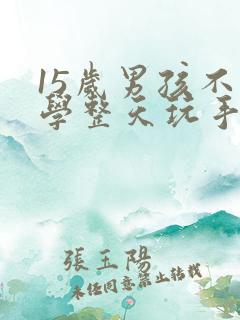 15歲男孩不
學整天玩手
張玉陽
未經同意禁止轉載